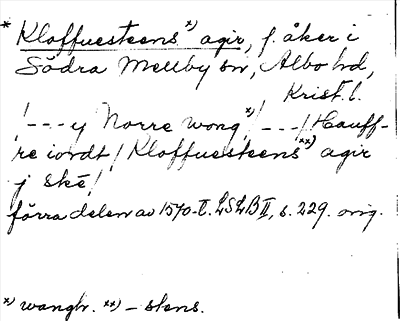 * Kloffuesteens x) agir, f. åker i
Södra Mellby sn, Albo hd,
Krist. l.
!---y Norre wong x)!---/Hauff-
re iordt/ Kloffuesteens xx) agir
j skē/
förra delen av 1570-t. LSLB II, s. 229. orig.
x) wangh. xx) - stens.